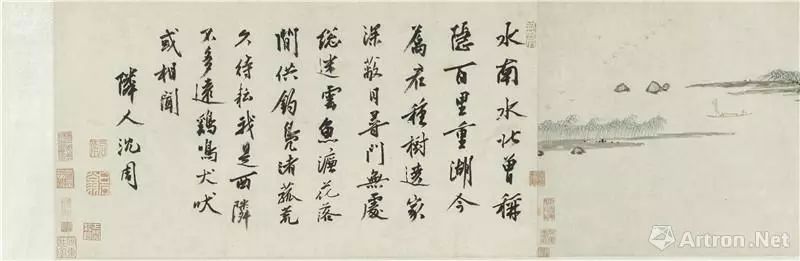 水南水北曾稱
隱百里重湖今
屬君種樹遶家
深蔽日尋門無處
總迷雲魚濂花落
間供釣鳧渚菰荒
久待耘我是西隣
不多遠鷄鳴犬吠
或相聞
隣人沈周
Artron.Net